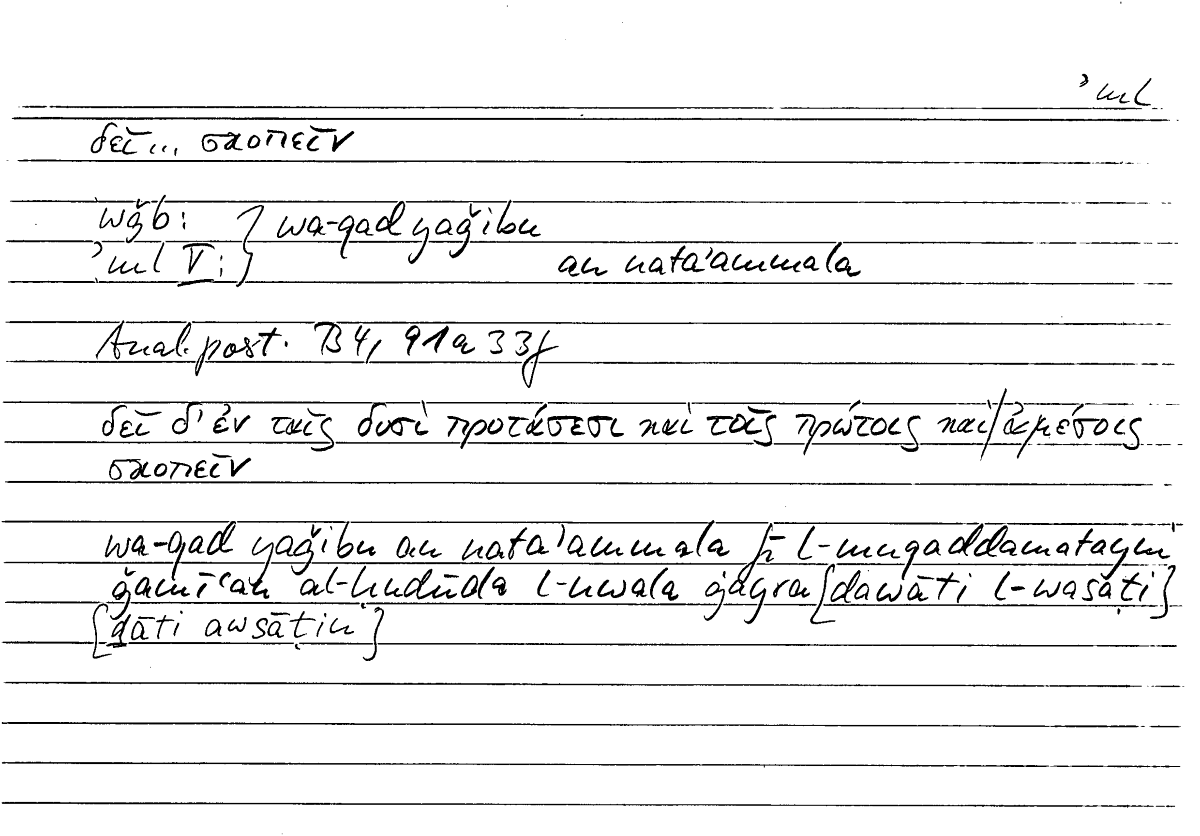 ʾml
δεῖ... σκοπεῖν
wǧb: } wa-qad yaǧibu
ʾml V: } an nataʾammala
Anal. post. B4, 91a 33f
δεῖ δ' ἐν ταῖς δυσὶ προτάσεσι καὶ τοῖς πρώτοις καὶ/ἀμέσοις
σκοπεῖν
wa-qad yaǧibu an nataʾammala fī l-muqaddamatayni
ǧamīʿan al-ḥudūda l-uwala ġayra [dawāti l-wasāṭi]
[ḏāti awsāṭin]